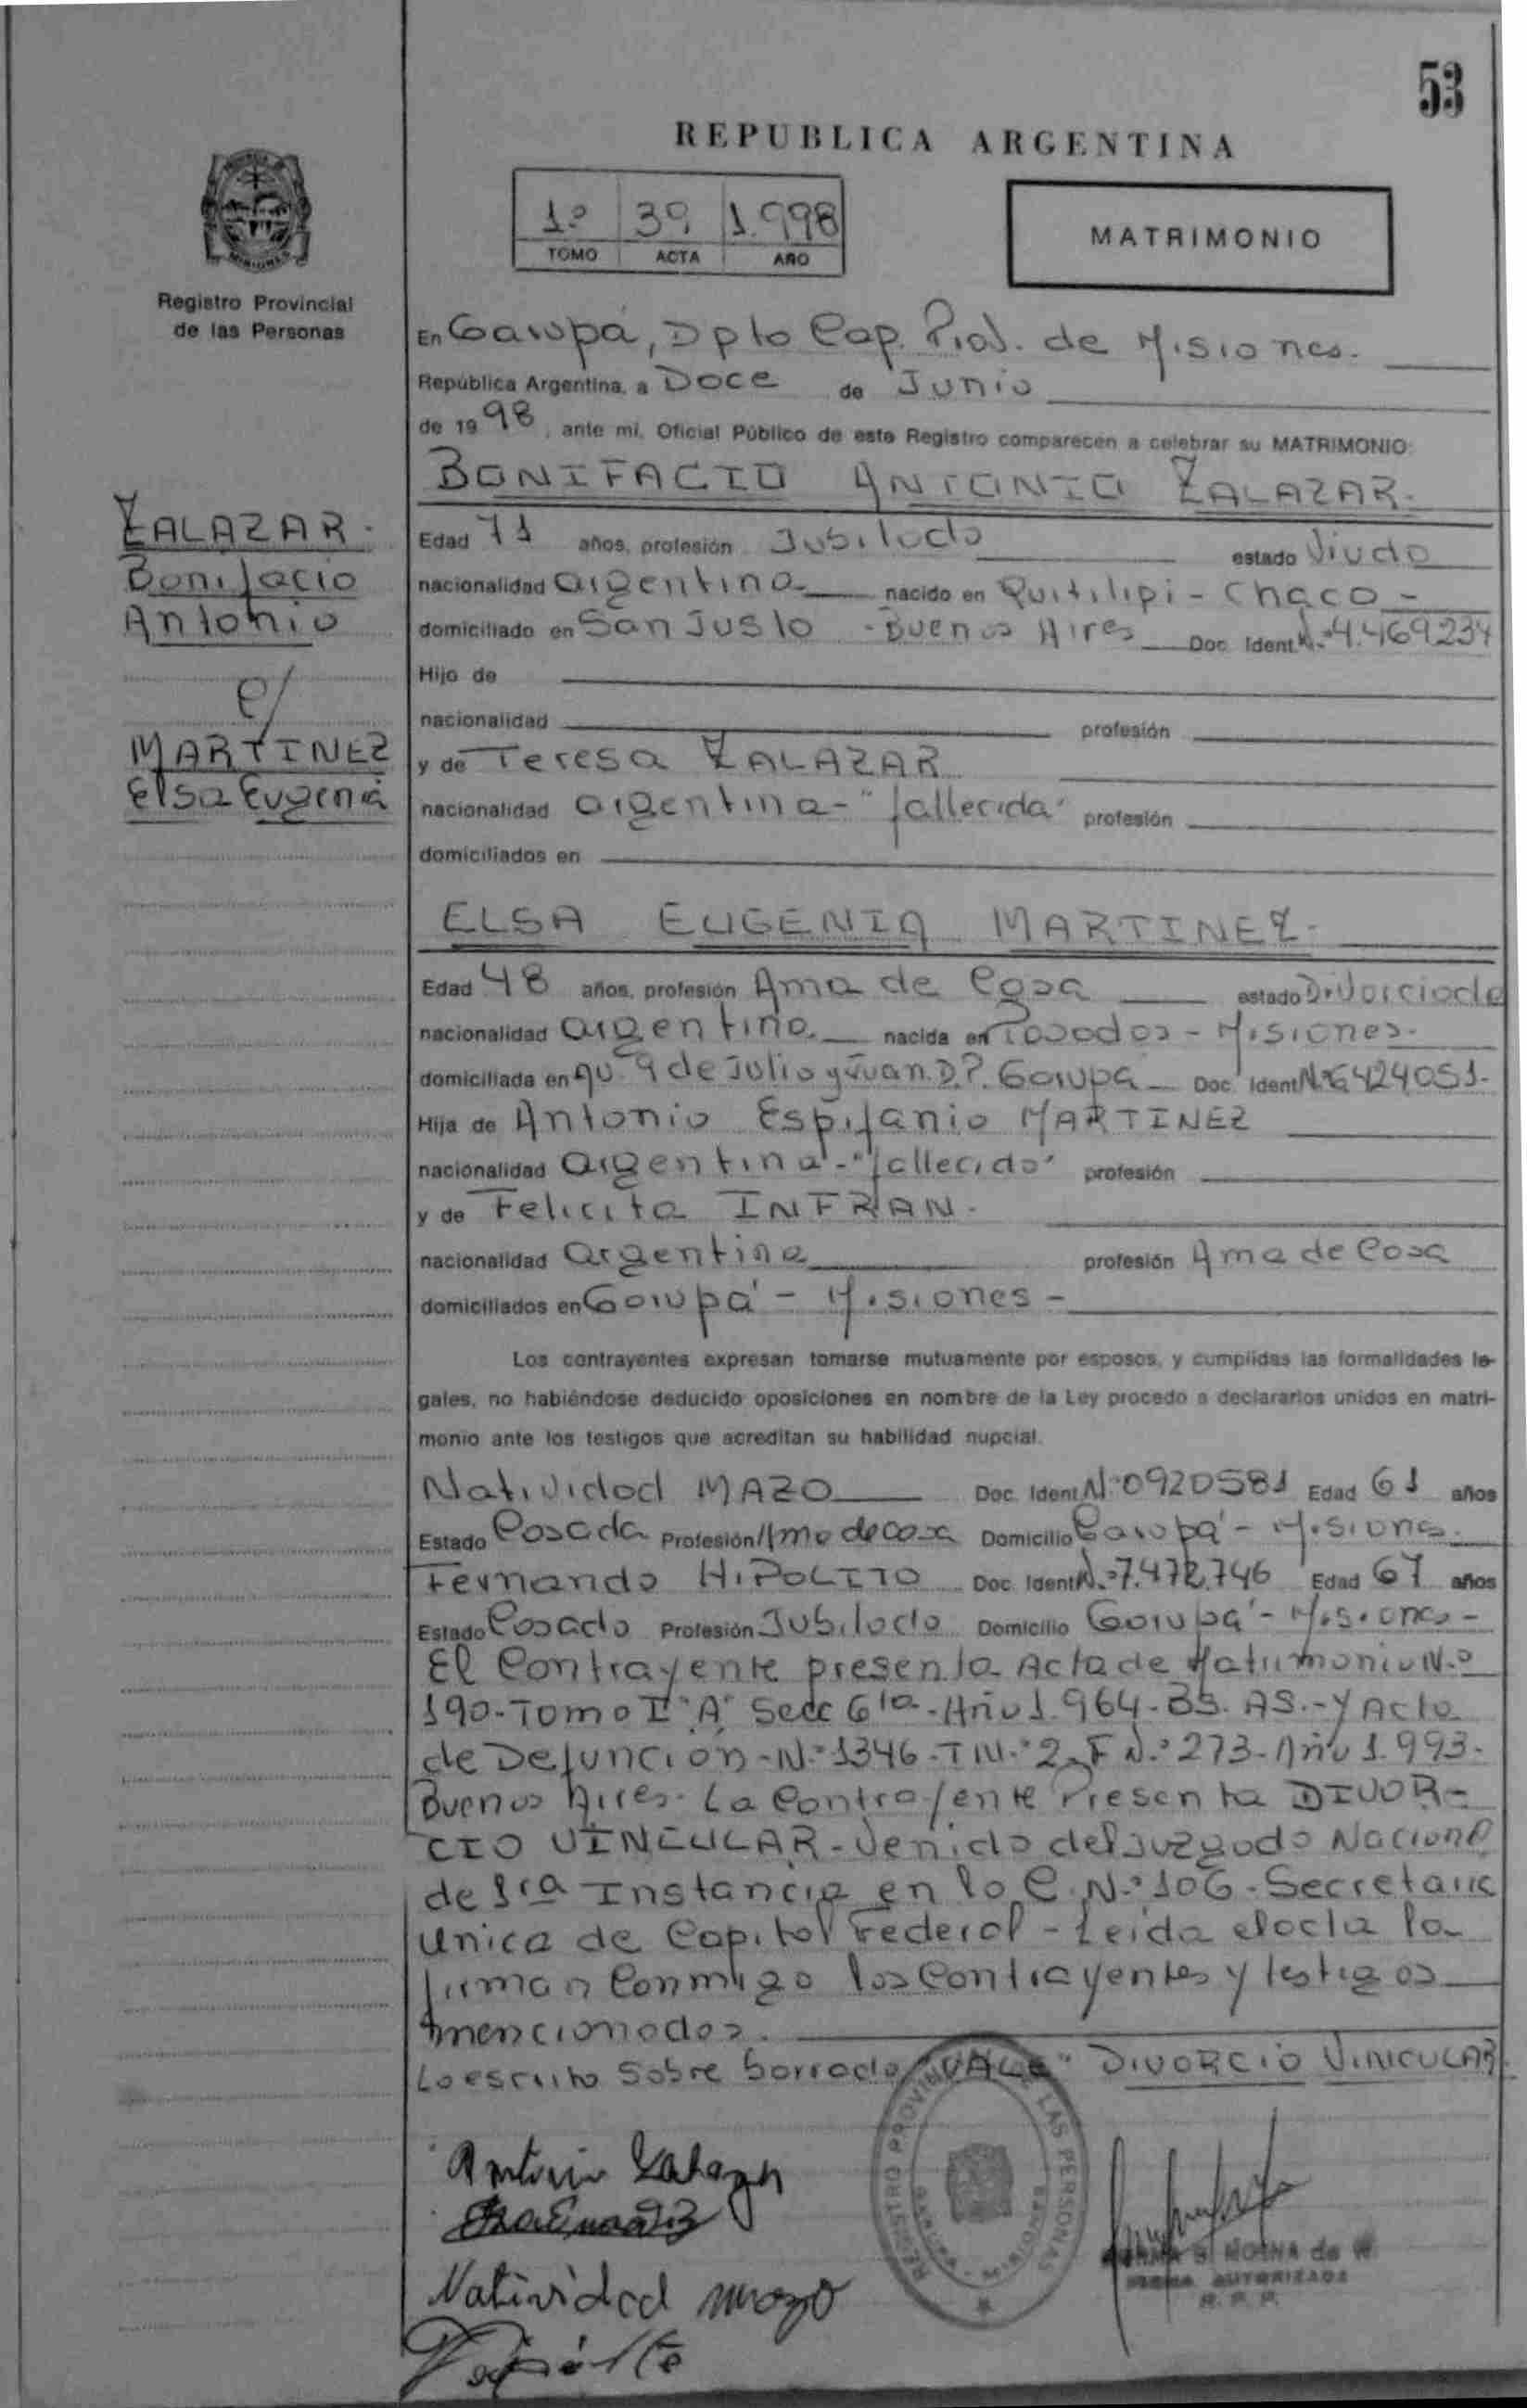 53
REPUBLICA ARGENTINA
1º 39 1.998
TOMO ACTA AÑO
MATRIMONIO
MISIONES
Registro Provincial
de las Personas
En Garupá, Dpto Cap. Prov. de Misiones.
República Argentina, a Doce de Junio
de 1998, ante mi, Oficial Público de este Registro comparecen a celebrar su MATRIMONIO:
BONIFACIO ANTONIO ZALAZAR.
ZALAZAR.
Bonifacio
Antonio
c/
MARTINEZ
Elsa Eugenia
Edad 71 años, profesión Jubilado estado Viudo
nacionalidad argentina nacido en Quitilipi - Chaco -
domiciliado en San Justo - Buenos Aires Doc. Ident. Nº 4.469234
Hijo de
nacionalidad profesión
y de Teresa ZALAZAR
nacionalidad argentina - "fallecida" profesión
domiciliados en
ELSA EUGENIA MARTINEZ.
Edad 48 años, profesión Ama de Casa estado Divorciada
nacionalidad argentina nacida en Posadas - Misiones.
domiciliada en Av. 9 de Julio y Juan D. P. Garupá Doc. Ident Nº 6424051-
Hija de Antonio Espifanio MARTINEZ
nacionalidad argentina - "fallecido" profesión
y de Felicita INFRAN.
nacionalidad argentina profesión Ama de Casa
domiciliados en Garupá - Misiones -
Los contrayentes expresan tomarse mutuamente por esposos, y cumplidas las formalidades le-
gales, no habiéndose deducido oposiciones en nombre de la Ley procedo a declararlos unidos en matri-
monio ante los testigos que acreditan su habilidad nupcial.
Natividad MAZO Doc. Ident Nº 0920581 Edad 61 años
Estado Casada Profesión Ama de casa Domicilio Garupá - Misiones.
Fernando HIPOLITO Doc. Ident Nº 7.472.746 Edad 67 años
Estado Casado Profesión Jubilado Domicilio Garupá - Misiones -
El Contrayente presenta Acta de Matrimonio N.º
190 - Tomo I "A" Secc 6ta - Año 1.964 - BS. AS. - y Acta
de Defunción - N.º 1346 - T N.º 2 - F N.º 273 - Año 1.993 -
Buenos Aires - La Contrayente Presenta DIVOR-
CIO VINCULAR - Venido del Juzgado Nacional
de 1ra Instancia en lo C. N.º 106 - Secretaria
Unica de Capital Federal - Leida el acta la
firman Conmigo los Contrayentes y testigos
mencionados.
Lo escrito Sobre borrado "VALE" DIVORCIO VINCULAR.
REGISTRO PROVINCIAL DE LAS PERSONAS
Antonio Zalazar
Natividad mazo
FIRMA AUTORIZADA
R. P. P.